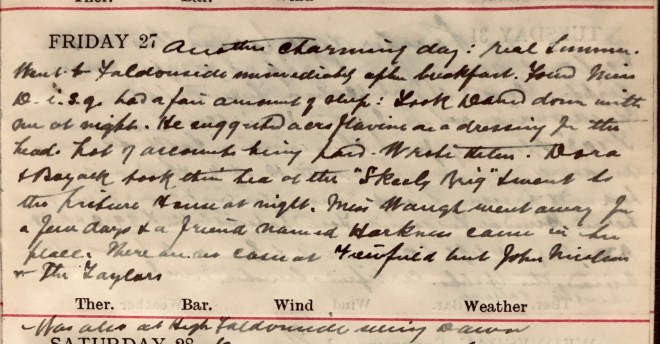 Ther. Bar. Wind
FRIDAY 27 Another charming day: real Summer.
Went to Faldonside immediately after breakfast. Found Miss
D. i. s. q. had a fair amount of sleep: Took David down with
me at night. He suggested acriflavine as a dressing for the
head. Lot of accounts being paid. Wrote Helen. Dora
& Boyack took their tea at the "Skeely Rig" & went to
the picture House at night. Miss Waugh went away for
a few days & a friend named Harkness came in her
place: There are no cases at Viewfield but John
& the Taylors
Ther. Bar. Wind Weather
Was also at High Faldonside seeing Dawn
SATURDAY 28